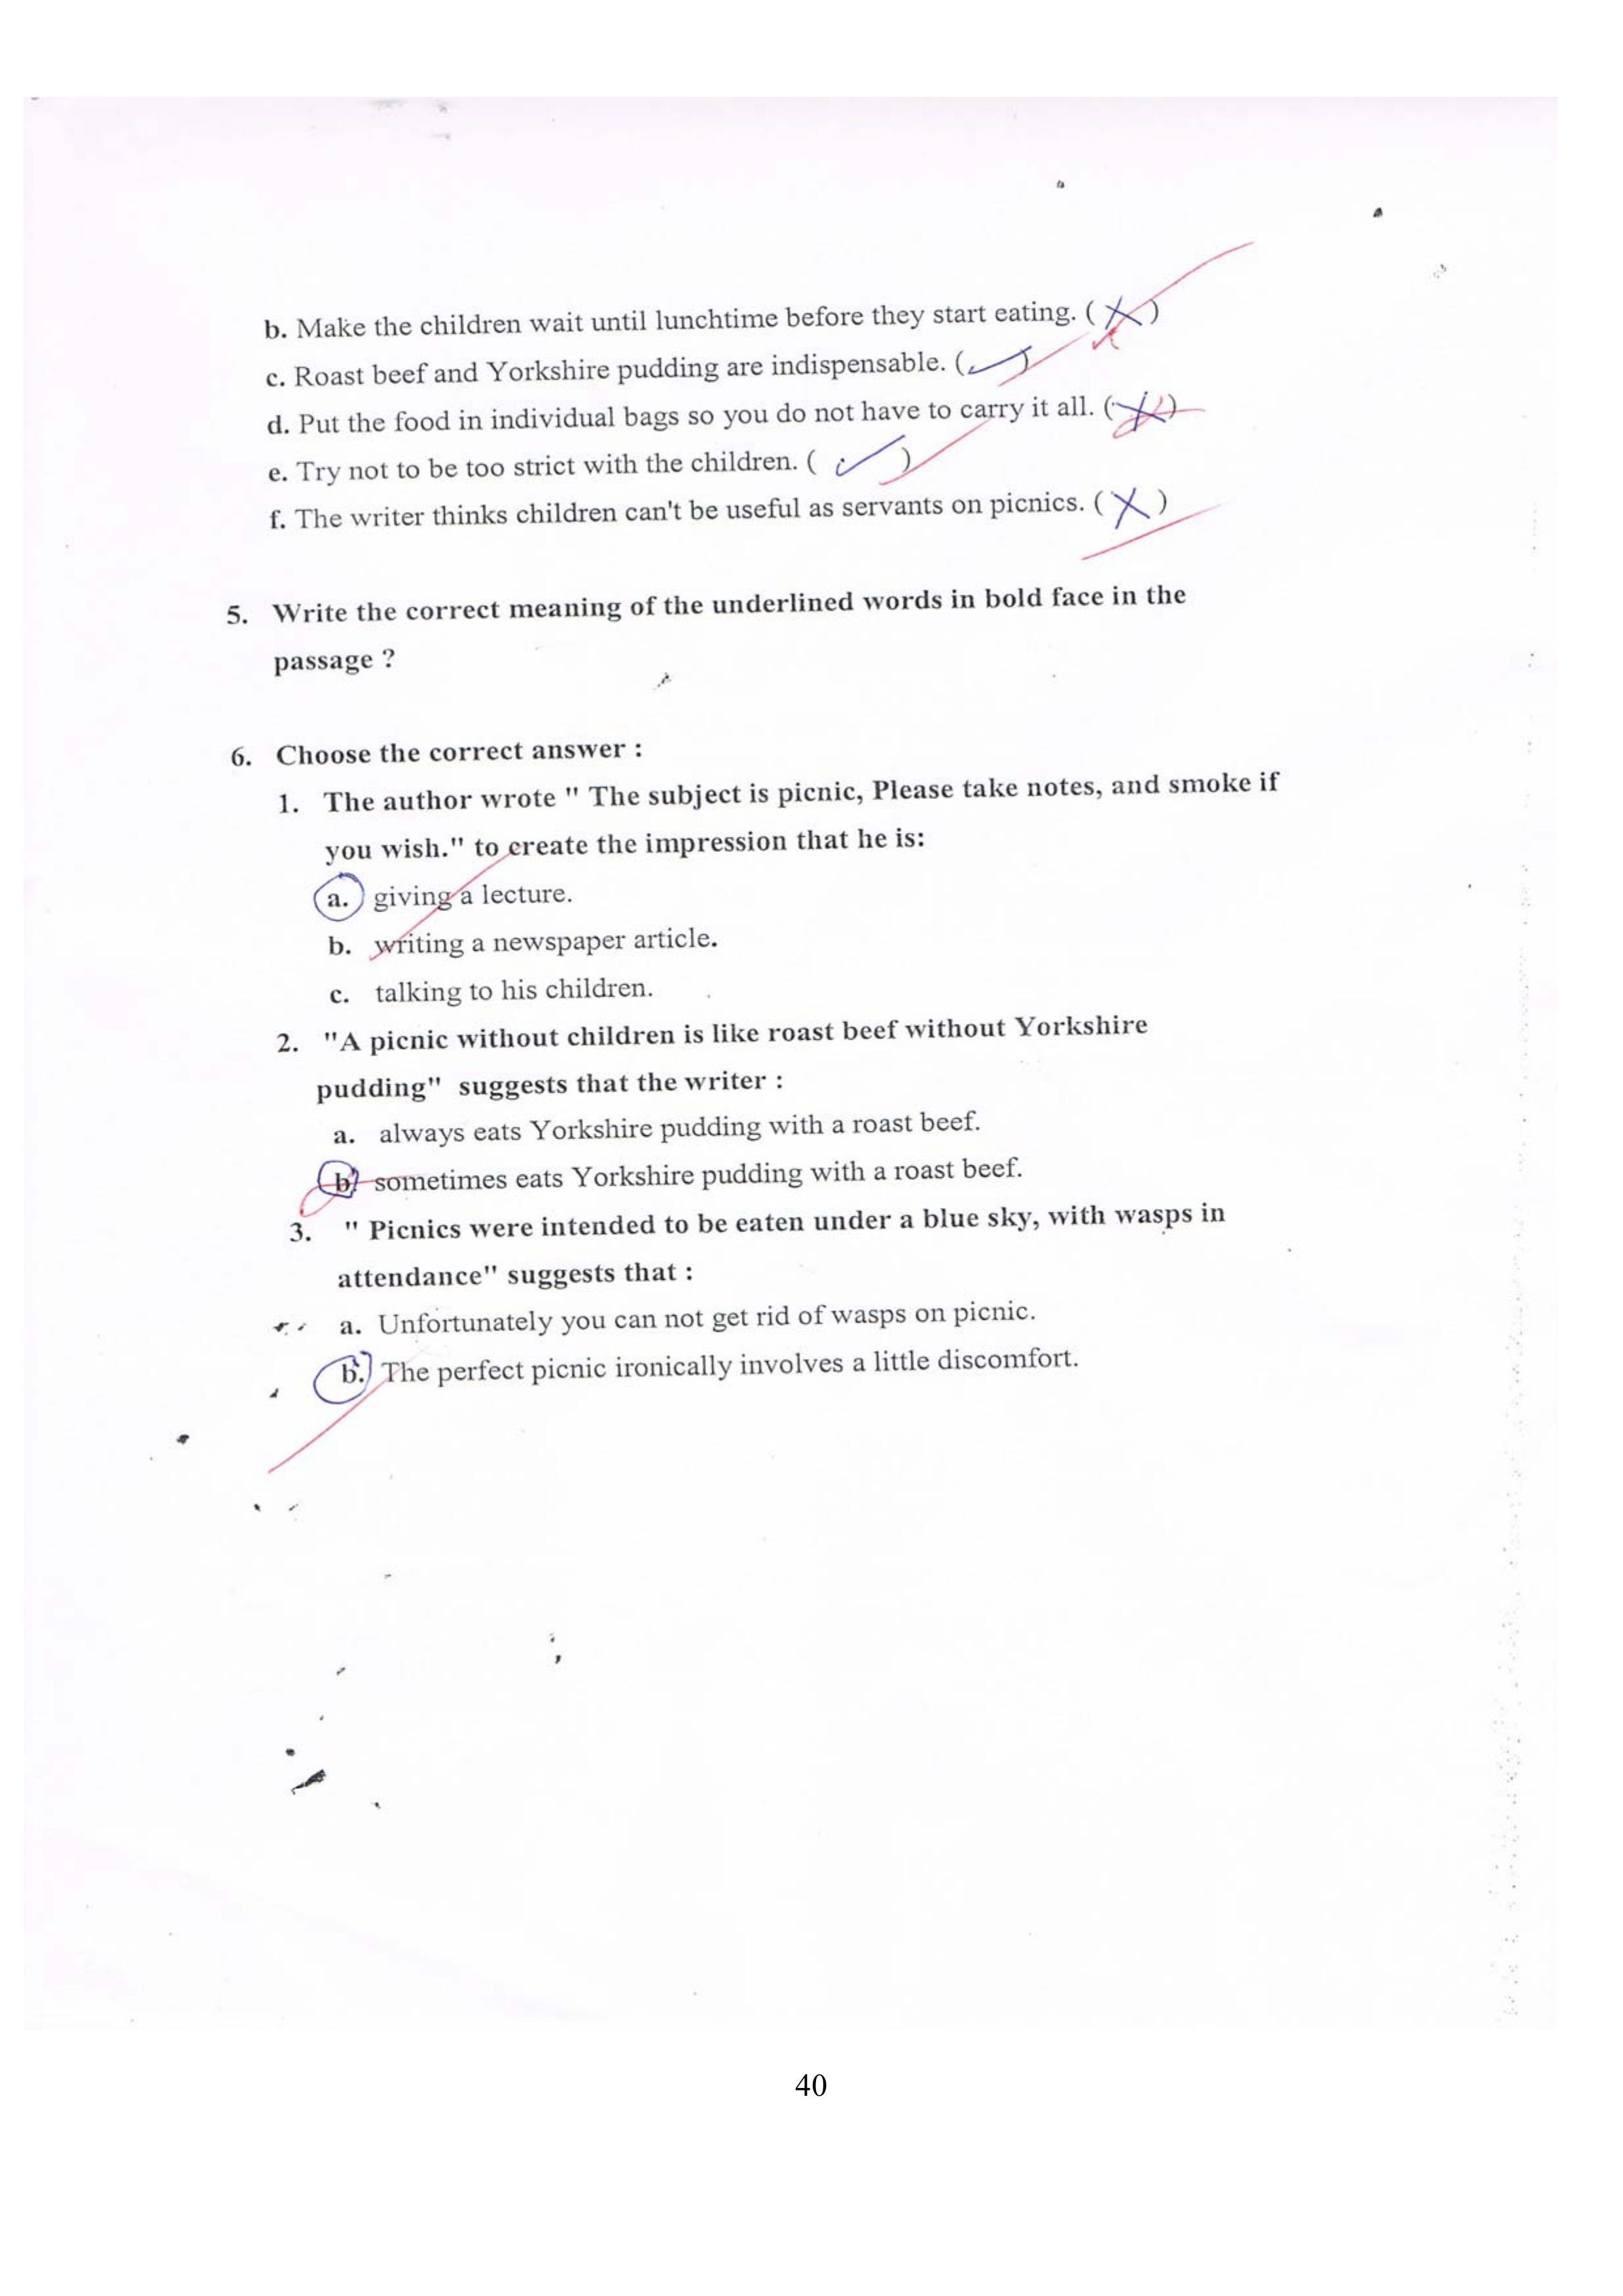 b. Make the children wait until lunchtime before they start eating. ( X )
c. Roast beef and Yorkshire pudding are indispensable. ( ✓ )
d. Put the food in individual bags so you do not have to carry it all. ( X )
e. Try not to be too strict with the children. ( ✓ )
f. The writer thinks children can't be useful as servants on picnics. ( X )
5. Write the correct meaning of the underlined words in bold face in the
passage ?
6. Choose the correct answer :
1. The author wrote " The subject is picnic, Please take notes, and smoke if
you wish." to create the impression that he is:
a. giving a lecture.
b. writing a newspaper article.
c. talking to his children.
2. "A picnic without children is like roast beef without Yorkshire
pudding" suggests that the writer :
a. always eats Yorkshire pudding with a roast beef.
b. sometimes eats Yorkshire pudding with a roast beef.
3. " Picnics were intended to be eaten under a blue sky, with wasps in
attendance" suggests that :
a. Unfortunately you can not get rid of wasps on picnic.
b. The perfect picnic ironically involves a little discomfort.
40